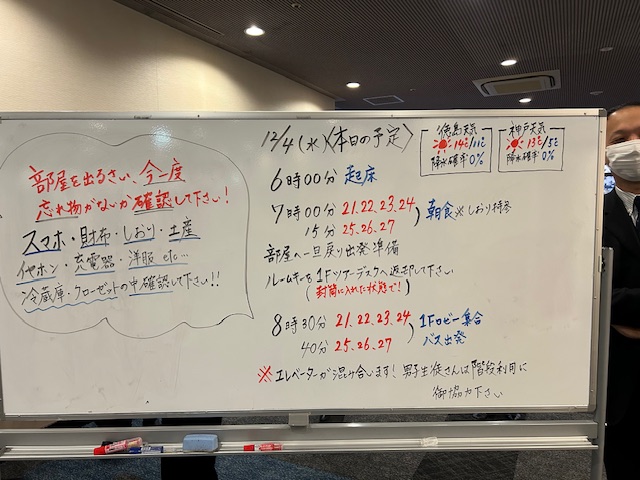 部屋を出るさい、今一度
忘れ物がないか確認して下さい!
スマホ・財布・しおり・土産
イヤホン・充電器・洋服 etc…
冷蔵庫・クローゼットの中確認して下さい!!
12/4(水)〈本日の予定〉
徳島天気
14℃/11℃
降水確率0%
神戸天気
13℃/5℃
降水確率0%
6時00分 起床
7時00分 21.22.23.24
15分 25.26.27
朝食※しおり持参
部屋へ一旦戻り出発準備
ルームキーを1Fツアーデスクへ返却して下さい
(封筒に入れた状態で!)
8時30分 21.22.23.24
40分 25.26.27
1Fロビー集合
バス出発
※エレベーターが混み合います!男子生徒さんは階段利用に
御協力下さい